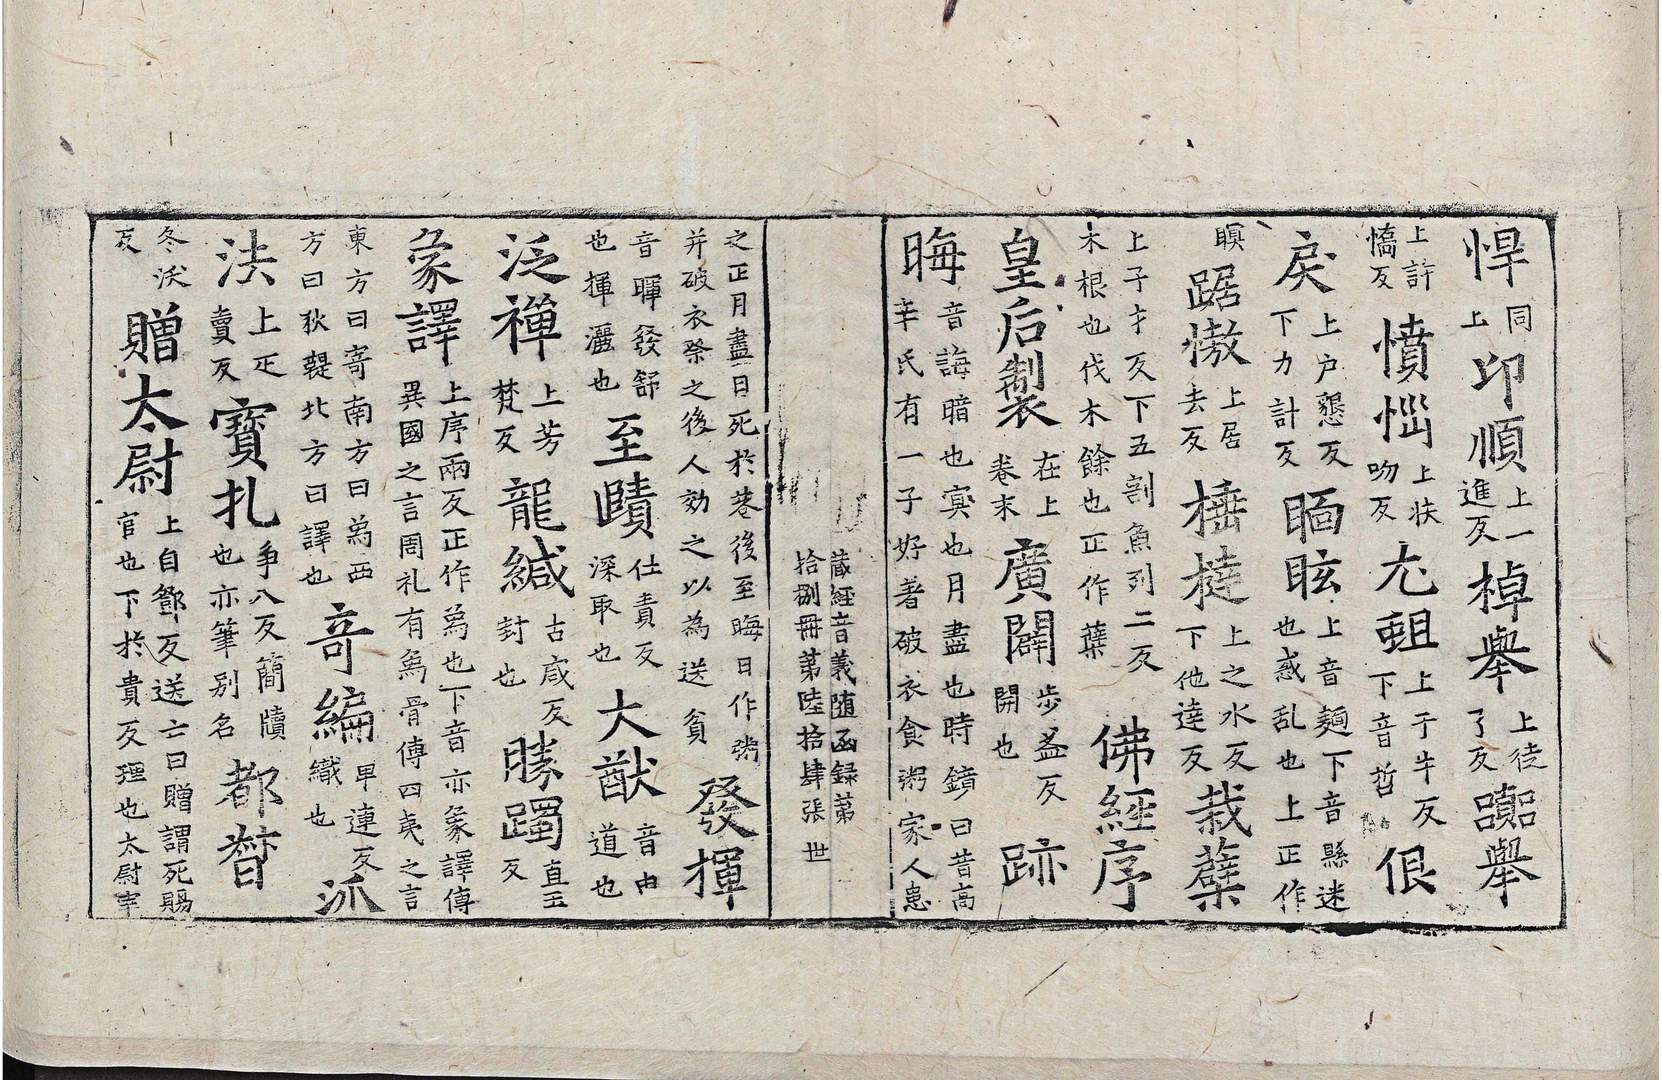 悍同上印順上一進反掉舉上徒了反躁舉
上許憍反憤惱上扶吻反尤蛆上于牛反下音哲佷
戾上户懇反下力計反眄眩上音麺下音縣迷也惑乱也上正作
瞑踞慠上居去反棰撻上之水反下他達反栽蘖
上子才反下五割魚列二反木根也伐木餘也正作蘖佛經序
皇后製在上卷末廣闢步益反開也跡
晦音誨暗也冥也月盡也時鏡曰昔高辛氏有一子好著破衣食粥家人
藏經音義随函録第
拾捌冊第陸拾肆張 世
之正月盡日死於巷後至晦日作粥并破衣祭之後人効之以為送貧發揮
音暉發舒也揮灑也至賾仕責反深取也大猷音由道也
泛禪上芳梵反龍緘古咸反封也勝躅直玉反
象譯上序兩反正作爲也下音亦象譯傳異國之言周礼有爲骨傳四夷之言
東方曰寄南方曰爲西方曰狄鞮北方曰譯也奇編卑連反織也派
法上疋賣反寶札爭八反簡牘也亦筆别名都督
冬沃反贈太尉上自鄧反送亡曰贈謂死賜官也下於貴反理也太尉宰